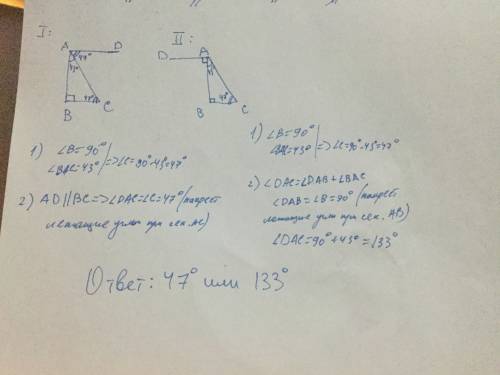 I:
A D
47°
43°
47°
B C
1) ∠B=90°
∠BAC=43° |=>∠C=90°-43°=47°
2) AD||BC=>∠DAC=∠C=47° (накрест
лежащие углы при сек. AC)
II:
D A
43°
47°
B C
1) ∠B=90°
∠BAC=43° |=>∠C=90°-43°=47°
2) ∠DAC=∠DAB+∠BAC
∠DAB=∠B=90° (накрест
лежащие углы при сек. AB)
∠DAC=90°+43°=133°
Ответ: 47° или 133°